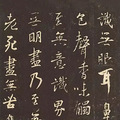 識無眼耳鼻
色聲香味觸
無意識界
無明盡乃至
老死盡無苦